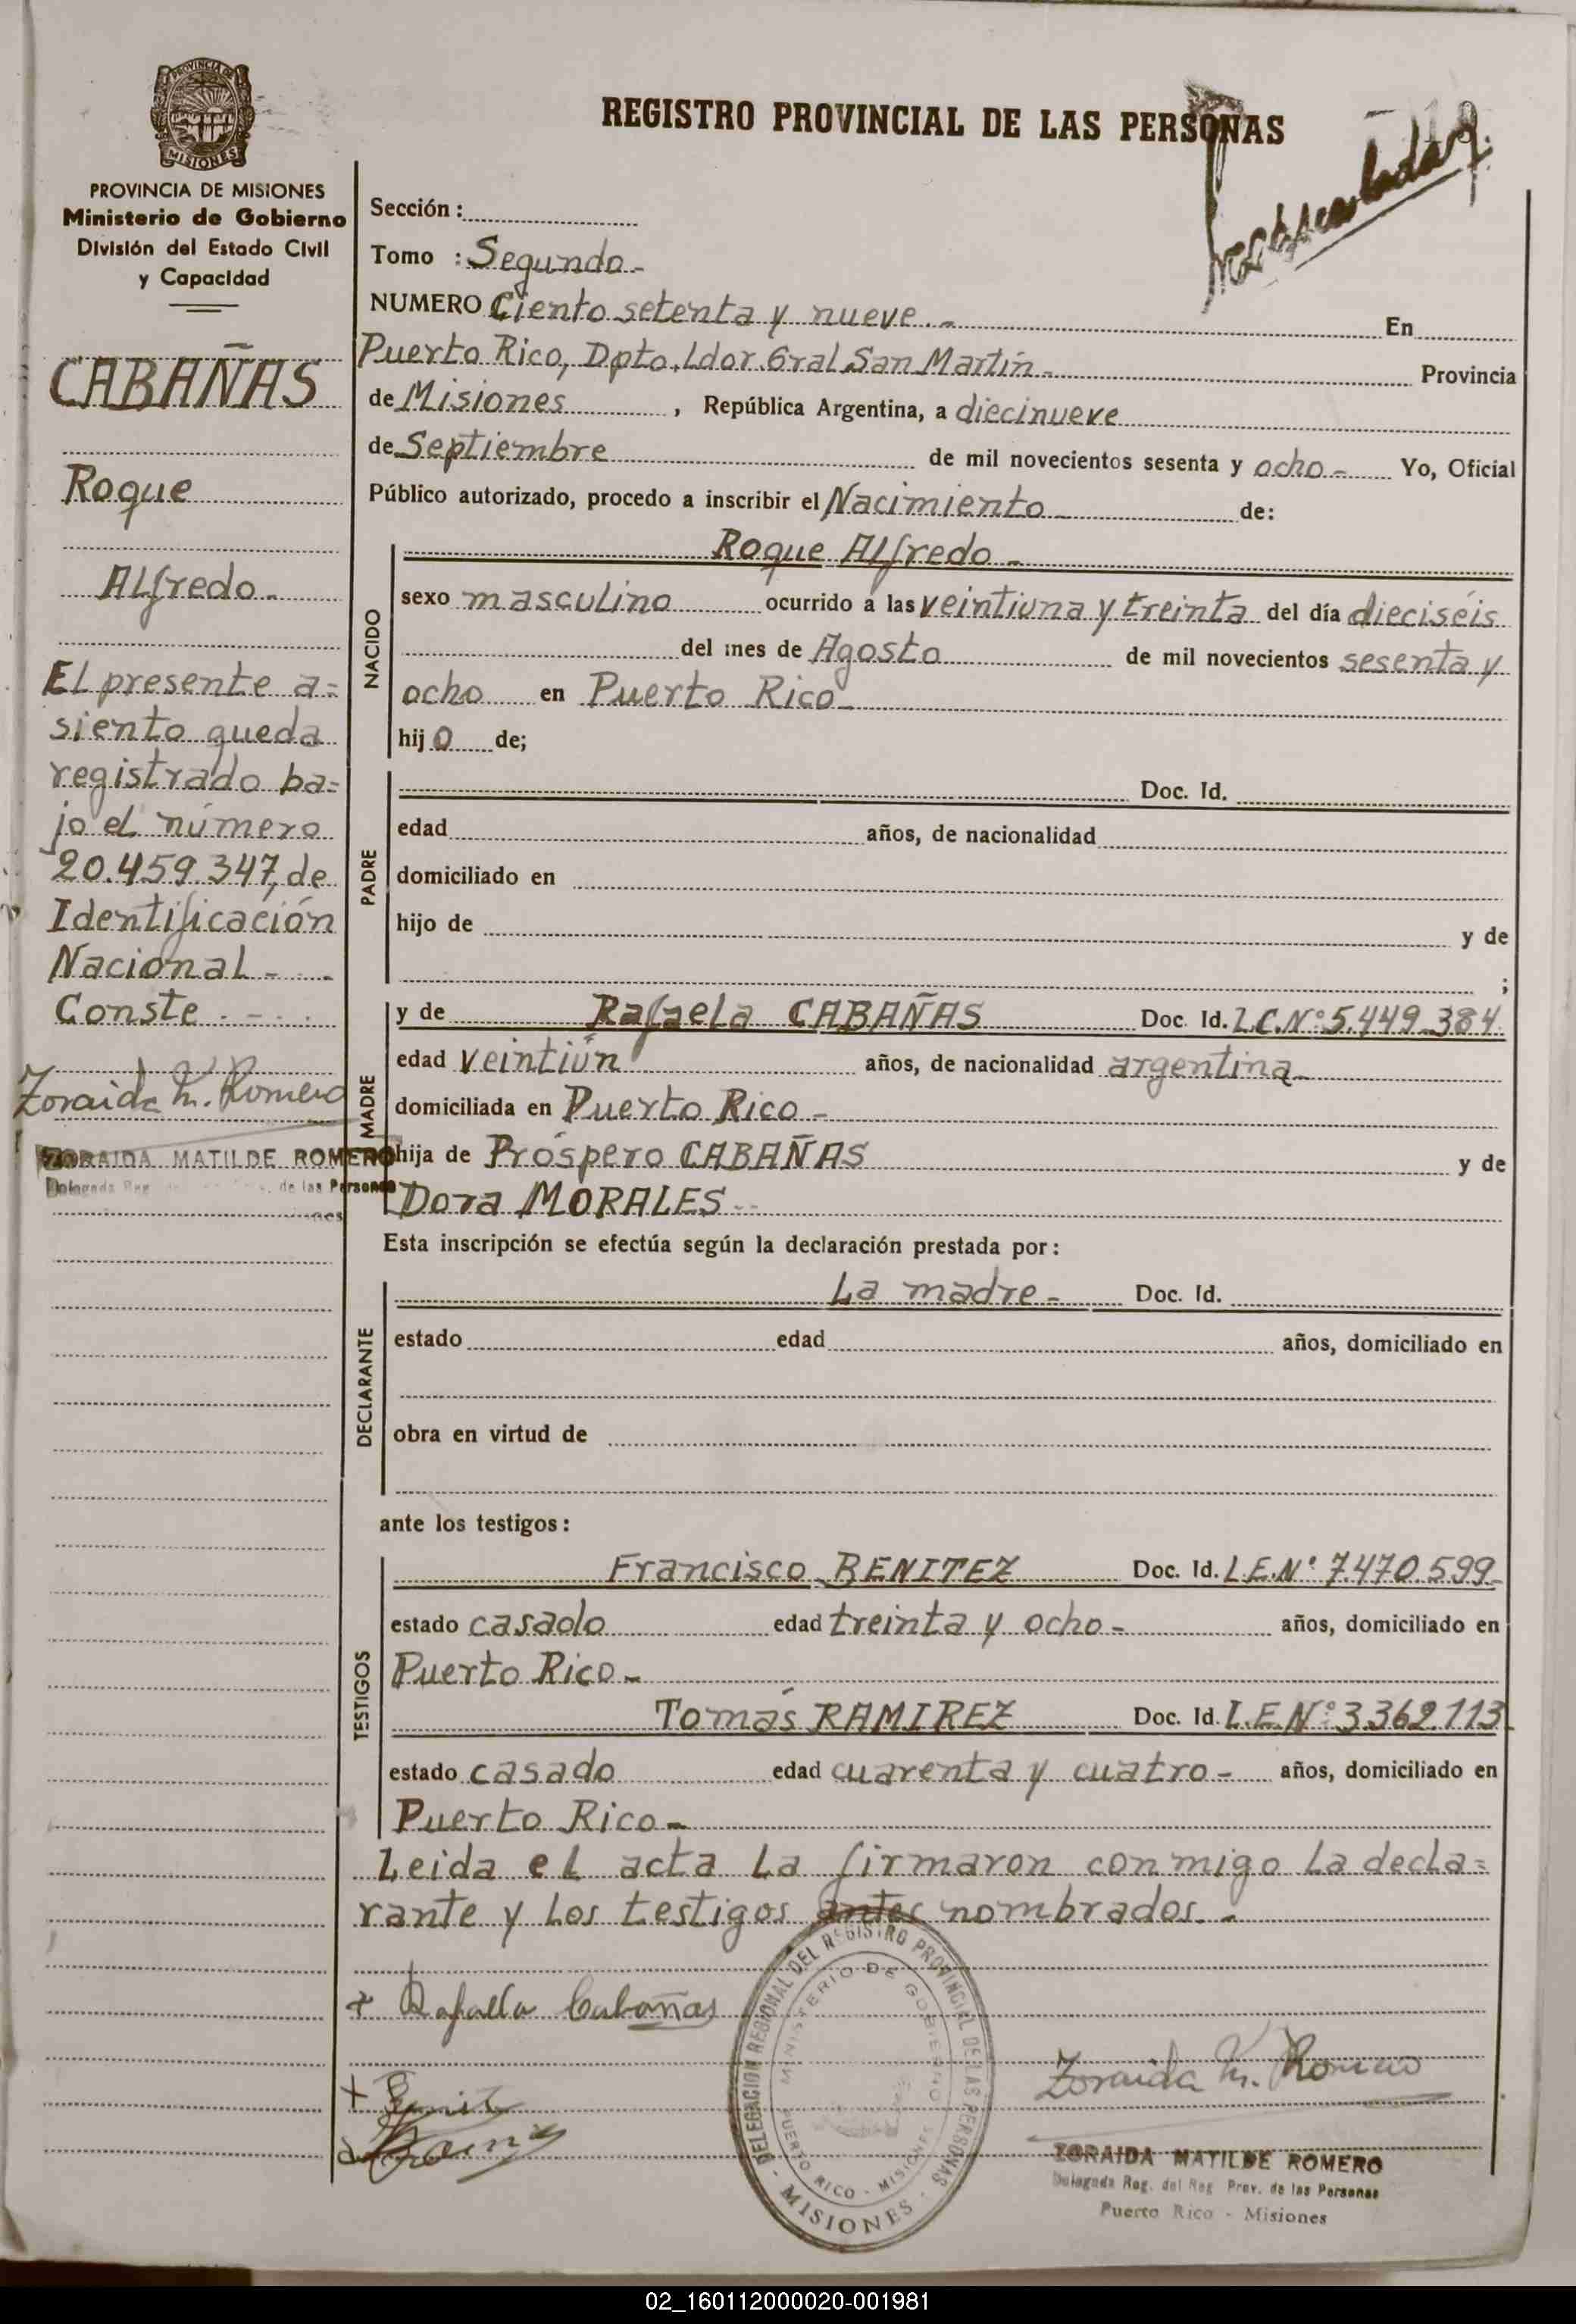 REGISTRO PROVINCIAL DE LAS PERSONAS
PROVINCIA DE
MISIONES
PROVINCIA DE MISIONES
Ministerio de Gobierno
División del Estado Civil
y Capacidad
CABAÑAS
Roque
Alfredo.-
El presente a=
siento queda
registrado ba=
jo el número
20.459.347, de
Identificación
Nacional - . -
Conste . - . .
Zoraida M. Romero
ZORAIDA MATILDE ROMERO
Delegada Reg. de las Personas
Sección :
Tomo : Segundo.-
NUMERO Ciento setenta y nueve.- En
Puerto Rico, Dpto. Ldor. Gral. San Martín.- Provincia
de Misiones , República Argentina, a diecinueve
de Septiembre de mil novecientos sesenta y ocho.- Yo, Oficial
Público autorizado, procedo a inscribir el Nacimiento de:
NACIDO
Roque Alfredo.-
sexo masculino ocurrido a las veintiuna y treinta del día dieciséis
del mes de Agosto de mil novecientos sesenta y
ocho en Puerto Rico.-
hij o de;
PADRE
Doc. Id.
edad años, de nacionalidad
domiciliado en
hijo de y de
;
MADRE
y de Rafaela CABAÑAS Doc. Id. L.C.Nº 5.449.384
edad veintiún años, de nacionalidad argentina.-
domiciliada en Puerto Rico.-
hija de Próspero CABAÑAS y de
Dora MORALES.--
Esta inscripción se efectúa según la declaración prestada por:
DECLARANTE
La madre.- Doc. Id.
estado edad años, domiciliado en
obra en virtud de
ante los testigos:
TESTIGOS
Francisco BENITEZ Doc. Id. L.E.Nº 7.470.599-
estado casado edad treinta y ocho.- años, domiciliado en
Puerto Rico.-
Tomás RAMIREZ Doc. Id. L.E.Nº 3.362.113
estado casado edad cuarenta y cuatro.- años, domiciliado en
Puerto Rico.-
Leida el acta la firmaron conmigo la decla=
rante y los testigos antes nombrados.-
+ Rafaela Cabañas
DELEGACION REGIONAL DEL REGISTRO PROVINCIAL DE LAS PERSONAS
- MISIONES -
MINISTERIO DE GOBIERNO
PUERTO RICO - MISIONES
Zoraida M. Romero
ZORAIDA MATILDE ROMERO
Delegada Reg. del Reg. Prov. de las Personas
Puerto Rico - Misiones
02_160112000020-001981